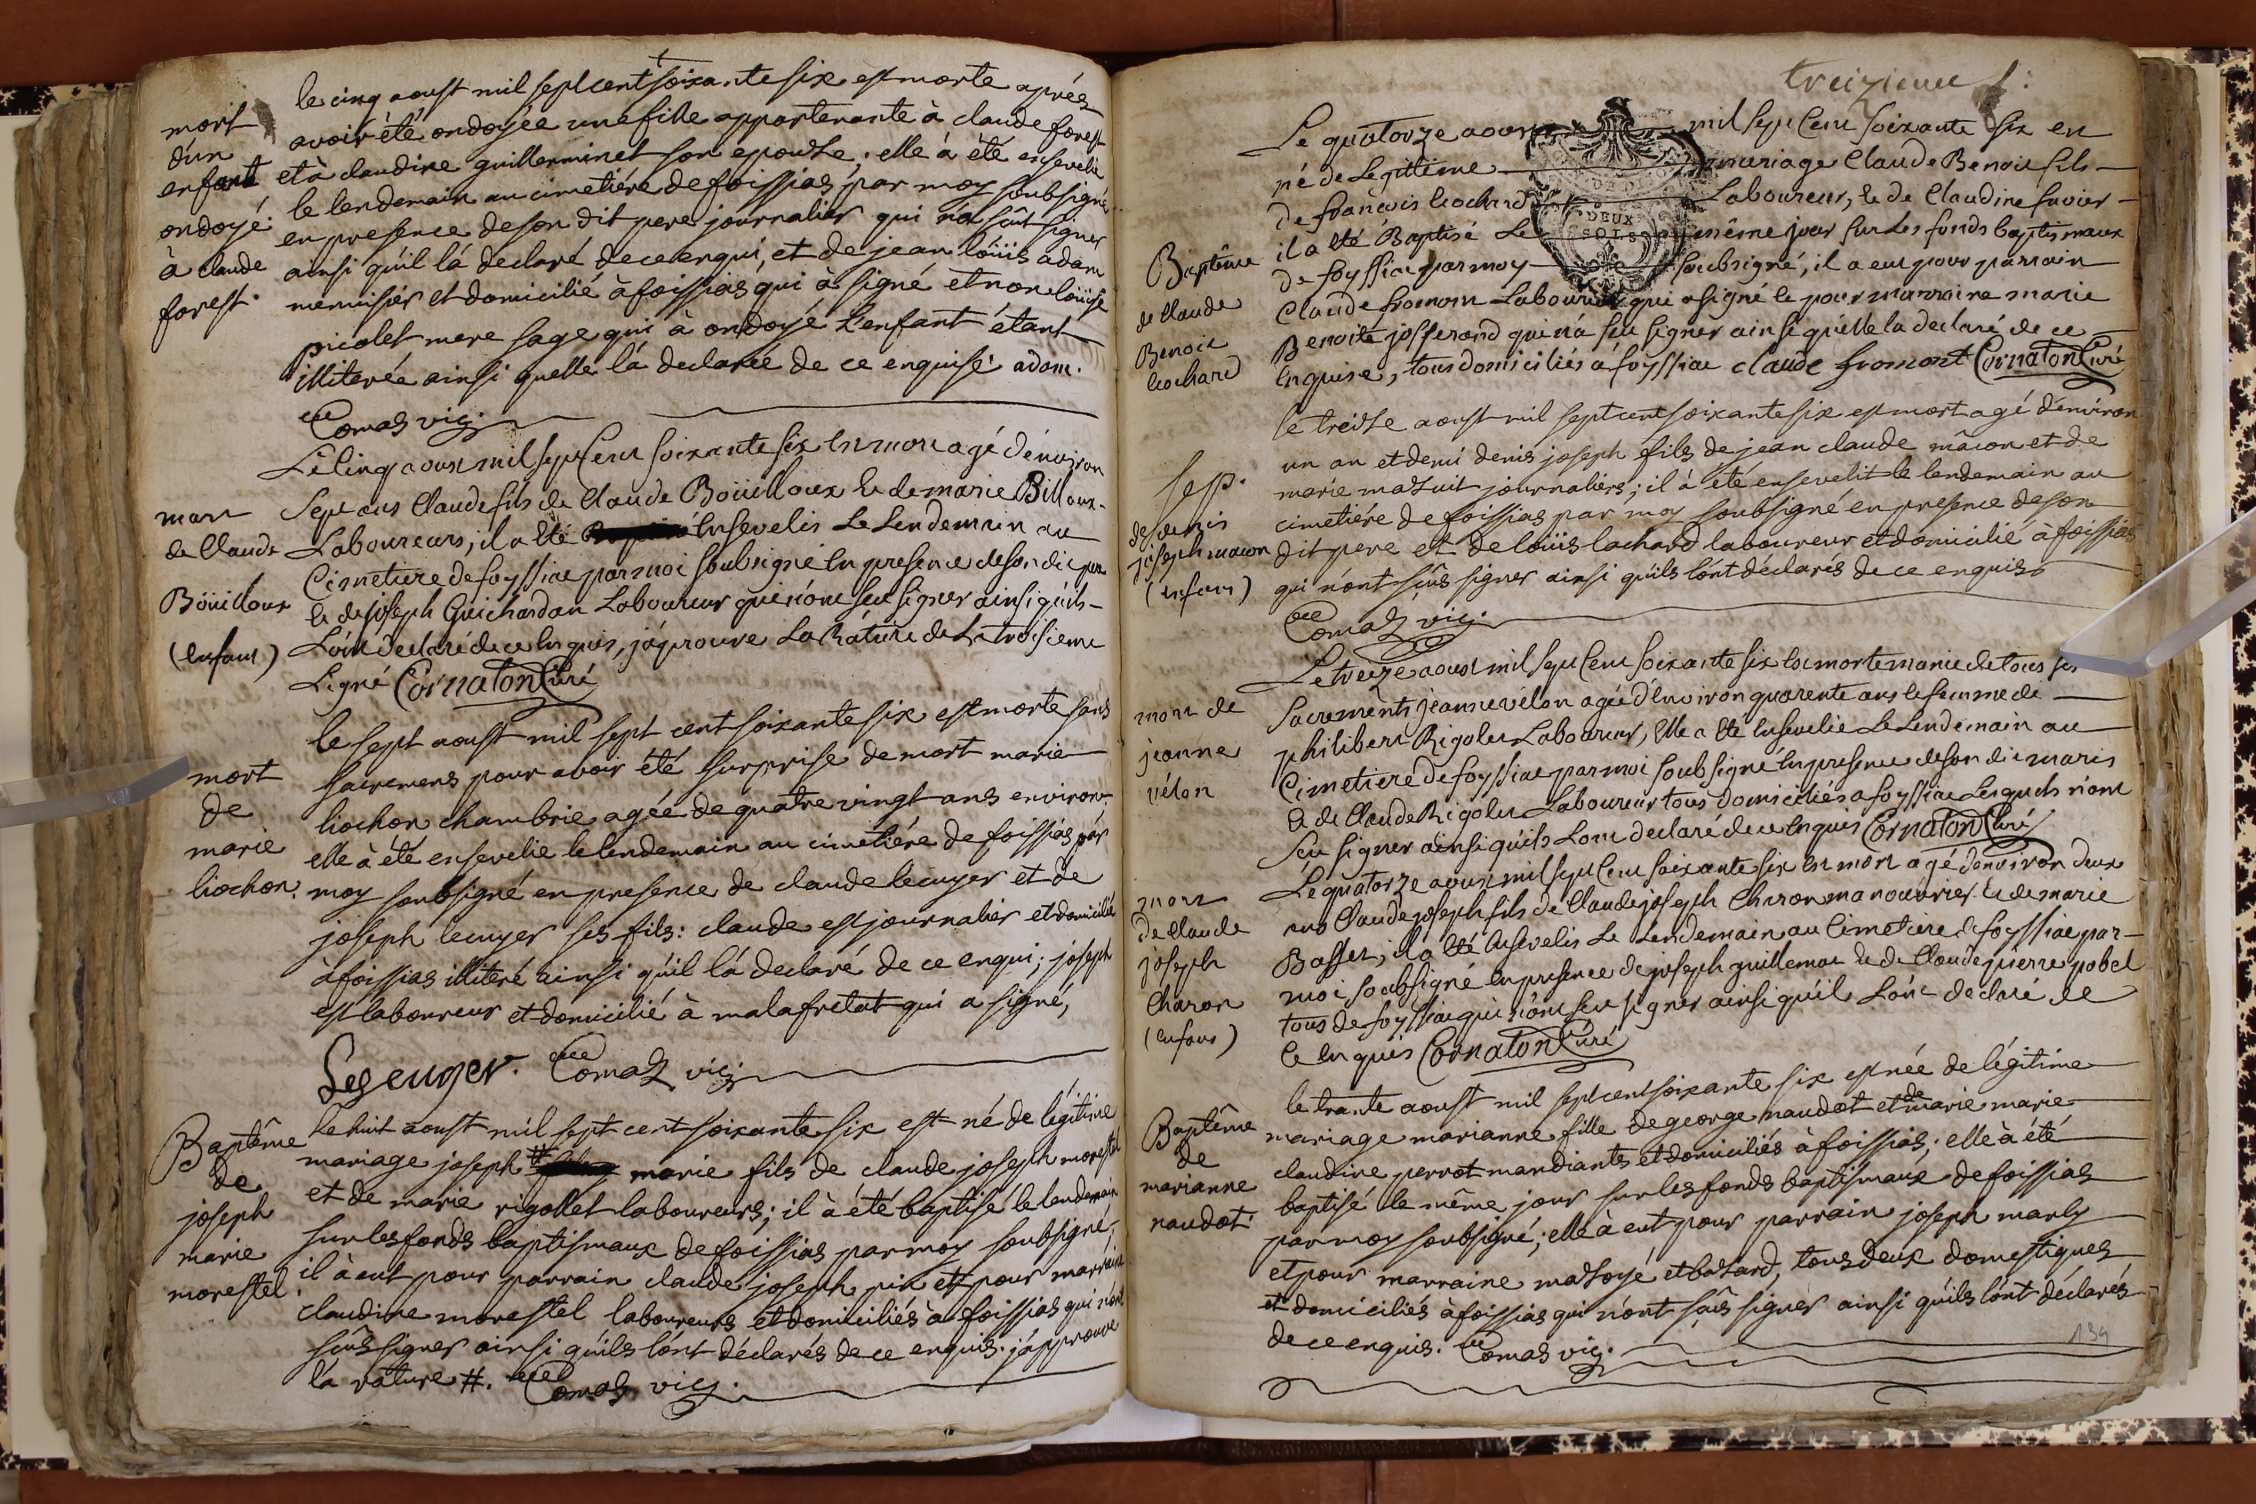 mort
d'un
enfant
ondoyé
à claude
forest.
le cinq aoust mil sept cent soixante six est morte aprés
avoir été ondoyée une fille appartenante à claude forest
et à claudine guilleminet son epouse. elle à été ensevelie
le lendemain au cimetiére de foissias par moy soubsigné
en presence de son dit pere journalier qui n'a sçût signer
ainsi qu'il l'a declaré de ce enqui, et de jean loüis adam
menuisier et domicilié à foissias qui à signé et non loüise
picolet mere sage qui à ondoyé l'enfant étant
illiterée ainsi quelle l'a declarée de ce enquise. adam.
Comas vic.
mort
de Claude
Boüilloux
(enfant)
Le cinq aoust mil sept Cent soixante six est mort agé d'environ
sept ans Claude fils de Claude Boüilloux et de marie Billoux
Laboureurs, il a été ensevelis Le Lendemain au
Cimetiere de foyssiac par moi soubsigné en presence de son dit pere
et de joseph Guichardan Laboureur qui n'ont sçu signer ainsi qu'ils
L'ont declaré de ce enquis, j'aprouve La Râture de La troisieme
Ligne Cornaton Curé
mort
de
marie
liochon.
le sept aoust mil sept cent soixante six est morte sans
sacremens pour avoir été surprise de mort marie
liochon chambrie agée de quatre vingt ans environ
elle à été ensevelie le lendemain au cimetiére de foissias par
moy soubsigné en presence de claude lecuyer et de
joseph lecuyer ses fils: claude est journalier et domicilié
à foissias illiteré ainsi qu'il l'a declaré de ce enqui; joseph
est laboureur et domicilié à malafretat qui a signé,
Leseuyer. Comas vic.
Baptême
de
joseph
marie
morestel.
le huit aoust mil sept cent soixante six est né de légitime
mariage joseph # marie fils de claude joseph morestel
et de marie rigollet laboureurs; il à été baptisé le lendemain
sur les fonds baptismaux de foissias par moy soubsigné,
il à eut pour parrain claude joseph pin et pour marraine
claudine morestel laboureurs et domiciliés à foissias qui n'ont
sçûs signer ainsi qu'ils l'ont déclarés de ce enquis. j'approuve
la râture #. Comas vic.
treizieme f:
DEUX
SOLS
Baptême
de Claude
Benoit
liochard
Le quatorze aoust mil sept Cent soixante six en
né de Legitime mariage Claude Benoit fils
de françois liochard Laboureur, et de Claudine
il a été Baptisé Le même jour sur Les fonds baptismaux
de foyssiac par moy soubsigné, il a eu pour parrain
Claude fromont Laboureur qui a signé et pour marraine marie
Benoite josserand qui n'a sçu signer ainsi qu'elle l'a declaré de ce
Enquise, tous domiciliés à foyssiac claude fromont Cornaton Curé
sep.
de denis
joseph macon
(enfant)
le treise aoust mil sept cent soixante six est mort agé d'environ
un an et demi denis joseph fils de jean claude mâcon et de
marie maduit journaliers; il à été ensevelit le lendemain au
cimetiére de foissias par moy soubsigné en presence de son
dit pere et de loüis lachard laboureur et domicilié à foissias
qui n'ont sçûs signer ainsi qu'ils l'ont déclarés de ce enquis
Comas vic.
mort de
jeanne
vélon
Le treize aoust mil sept Cent soixante six est morte munie de tous ses
sacrements jeanne vélon agée d'Environ quarente ans et femme de
philibert Rigolet Laboureur, Elle a été Ensevelie Le Lendemain au
Cimetiere de foyssiac par moi soubsigné En presence de son dit maris
et de Claude Rigolet Laboureur tous domiciliés a foyssiac Lesquels n'ont
sçu signer ainsi qu'ils L'ont declaré de ce Enquis Cornaton Curé
mort
de Claude
joseph
Charon
(enfans)
Le quatorze aoust mil sept Cent soixante six est mort agé d'environ deux
ans Claude joseph fils de Claude joseph Charon manouvrier et de marie
Basset, il a été Ensevelis Le Lendemain au Cimetiere de foyssiac par
moi soubsigné En presence de joseph guillemot et de Claude pierre pobel
tous de foyssiac qui n'ont sçu signer ainsi qu'il L'ont declaré de
Ce Enquis Cornaton Curé
Baptême
de
marianne
naudot.
le trante aoust mil sept cent soixante six est née de légitime
mariage marianne fille de george naudot et de marie marie
claudine perrot mandiants et domiciliés à foissias; elle à été
baptisé le même jour sur les fonds baptismaux de foissias
par moy soubsigné; elle à eut pour parrain joseph marly
et pour marraine et batard, tous deux domestiques
et domiciliés à foissias qui n'ont sçûs signer ainsi qu'ils l'ont déclarés
de ce enquis. Comas vic.
139